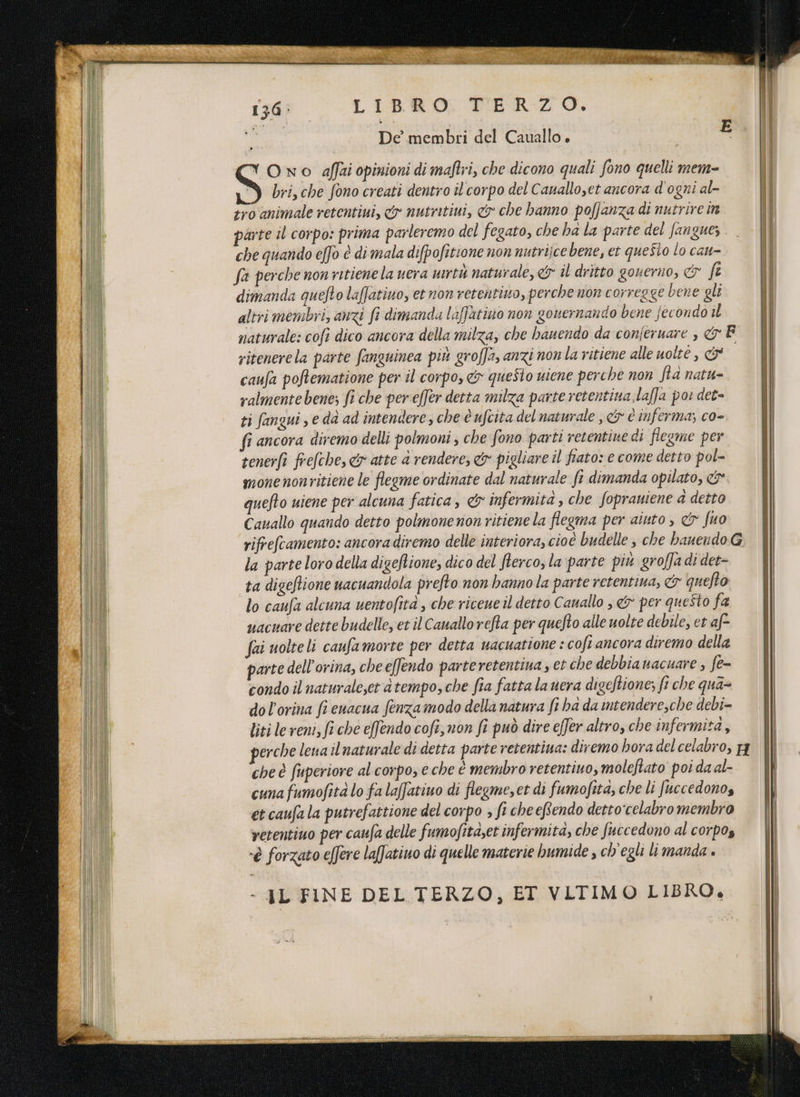 136 LIBRO TERZO.
De' membri del Cauallo.
E
SOno aſſai opinioni di maſtri, che dicono quali ſono quelli mem-
bri, che ſono creati dentro il corpo del Cauallo, et ancora d'ogni al-
tro animale retentiui, & nutritiui, & che hanno poſſanza di nutrire in
parte il corpo: prima parleremo del fegato, che ha la parte del ſangue;
che quando eſſo è di mala diſpoſitione non nutriſce bene, et queſto lo cau-
ſa perche non ritiene la uera uirtù naturale, & il dritto gouerno, & ſi
dimanda queſto laſſatiuo, et non retentiuo, perche non corregge bene gli
altri membri, anzi ſi dimanda laſſatiuo non gouernando bene ſecondo il
naturale: coſi dico ancora della milza, che hauendo da conſeruare, & F
ritenere la parte ſanguinea più groſſa, anzi non la ritiene alle uolte, &
cauſa poſtematione per il corpo, & queſto uiene perche non ſtà natu-
ralmente bene; ſi che per eſſer detta milza parte retentiua, laſſa poi det-
ti ſangui, e dà ad intendere, che è uſcita del naturale, & è inferma; co-
ſi ancora diremo delli polmoni, che ſono parti retentiue di flegme per
tenerſi freſche, & atte à rendere, & pigliare il fiato: e come detto pol-
mone non ritiene le flegme ordinate dal naturale ſi dimanda opilato, &
queſto uiene per alcuna fatica, & infermità, che ſoprauiene à detto
Cauallo quando detto polmone non ritiene la flegma per aiuto, & ſuo
rifreſcamento: ancora diremo delle interiora, cioè budelle, che hauendo G
la parte loro della digeſtione, dico del ſterco, la parte più groſſa di det-
ta digeſtione uacuandola preſto non hanno la parte retentiua, & queſto
lo cauſa alcuna uentoſità, che riceue il detto Cauallo, & per queſto fa
uacuare dette budelle, et il Cauallo reſta per queſto alle uolte debile, et aſ-
ſai uolte li cauſa morte per detta uacuatione: coſi ancora diremo della
parte dell'orina, che eſſendo parte retentiua, et che debbia uacuare, ſe-
condo il naturale, et à tempo, che ſia fatta la uera digeſtione; ſi che quā-
do l'orina ſi euacua ſenza modo della natura ſi hà da intendere, che debi-
liti le reni, ſi che eſſendo coſi, non ſi può dire eſſer altro, che infermità,
perche leua il naturale di detta parte retentiua: diremo hora del celabro, H
che è ſuperiore al corpo, e che è membro retentiuo, moleſtato poi da al-
cuna fumoſità lo fa laſſatiuo di flegme, et di fumoſità, che li ſuccedono,
et cauſa la putrefattione del corpo, ſi che eſſendo detto celabro membro
retentiuo per cauſa delle fumoſità, et infermità, che ſuccedono al corpo,
è forzato eſſere laſſatiuo di quelle materie humide, ch'egli li manda.
IL FINE DEL TERZO, ET VLTIMO LIBRO.